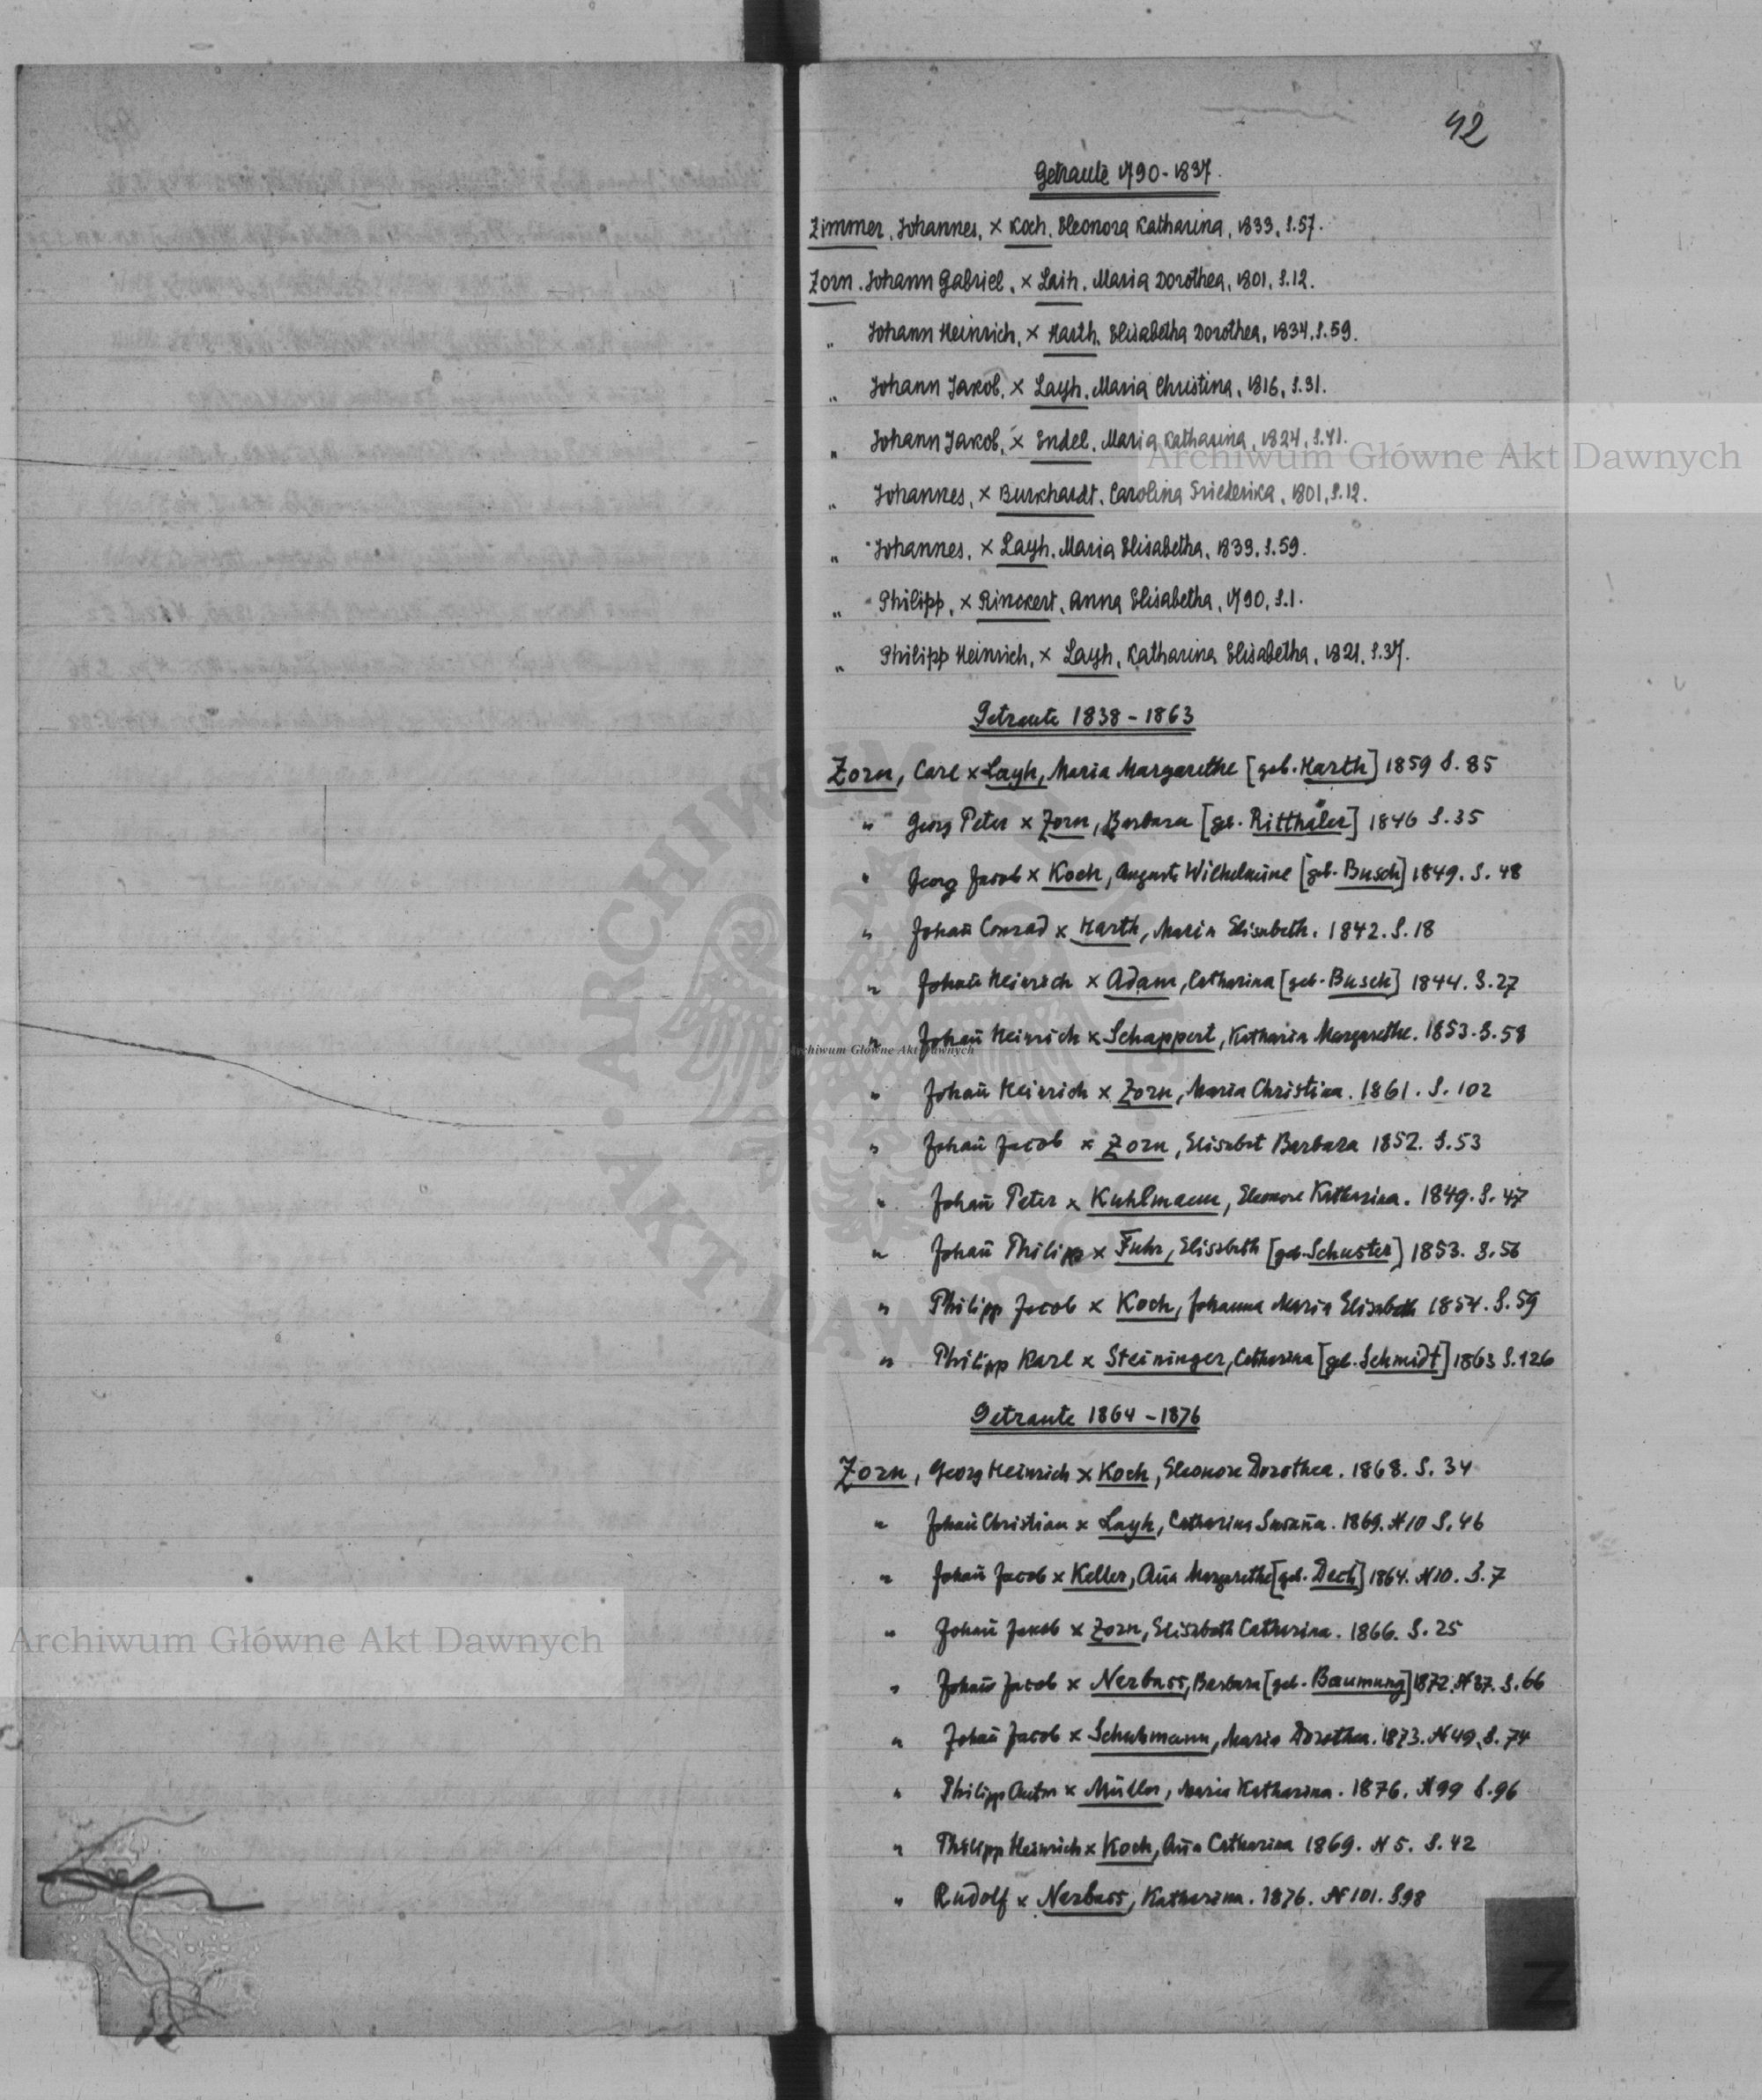 42
Getraute 1790-1837.
Zimmer, Johannes, × Koch, Eleonora Katharina, 1833, S.57.
Zorn. Johann Gabriel, × Laih, Maria Dorothea, 1801, S.12.
" Johann Heinrich, × Harth, Elisabetha Dorothea, 1834, S.59.
" Johann Jakob, × Layh, Maria Christina, 1816, S.31.
" Johann Jakob, × Endel, Maria Katharina, 1824, S.41.
Archiwum Główne Akt Dawnych
" Johannes, × Burkhardt, Carolina Friederika, 1801, S.12.
" Johannes, × Layh, Maria Elisabetha, 1833, S.59.
" Philipp, × Rinckert, Anna Elisabetha, 1790, S.1.
" Philipp Heinrich, × Layh, Katharina Elisabetha, 1821, S.37.
Getraute 1838-1863
Zorn, Carl × Layh, Maria Margarethe [geb. Harth] 1859 S. 85
" Georg Peter × Zorn, Barbara [geb. Ritthaler] 1846 S. 35
" Georg Jacob × Koch, Auguste Wilhelmine [geb. Busch] 1849. S. 48
" Johan̄ Conrad × Harth, Maria Elisabeth. 1842. S. 18
" Johan̄ Heinrich × Adam, Catharina [geb. Busch] 1844. S. 27
" Johan̄ Heinrich × Schappert, Katharin Margarethe. 1853. S. 58
Archiwum Główne Akt Dawnych
" Johan̄ Heinrich × Zorn, Maria Christina. 1861. S. 102
" Johan̄ Jacob × Zorn, Elisabet Barbara 1852. S. 53
" Johan̄ Peter × Kuhlmann, Eleonore Katharina. 1849. S. 47
" Johan̄ Philipp × Fuhr, Elisabeth [geb. Schuster] 1853. S. 56
" Philipp Jacob × Koch, Johanna Maria Elisabeth 1854. S. 59
" Philipp Karl × Steininger, Catharina [geb. Schmidt] 1863 S. 126
ARCHIWUM GŁÓWNE AKT DAWNYCH
Getraute 1864-1876
Zorn, Georg Heinrich × Koch, Eleonore Dorothea. 1868. S. 34
" Johan̄ Christian × Layh, Catharina Susan̄a. 1869. N 10 S. 46
" Johan̄ Jacob × Keller, An̄a Margarethe [geb. Dech] 1864. N 10. S. 7
" Johan̄ Jakob × Zorn, Elisabeth Catharina. 1866. S. 25
Archiwum Główne Akt Dawnych
" Johan̄ Jacob × Nerbass, Barbara [geb. Baumung] 1872. N 37. S. 66
" Johan̄ Jacob × Schuhmann, Maria Dorothea. 1873. N 49. S. 74
" Philipp Anton × Müller, Maria Katharina. 1876. N 99 S. 96
" Philipp Heinrich × Koch, An̄a Catharina 1869. N 5. S. 42
" Rudolf × Nerbass, Katharina. 1876. N 101. S. 98
Z